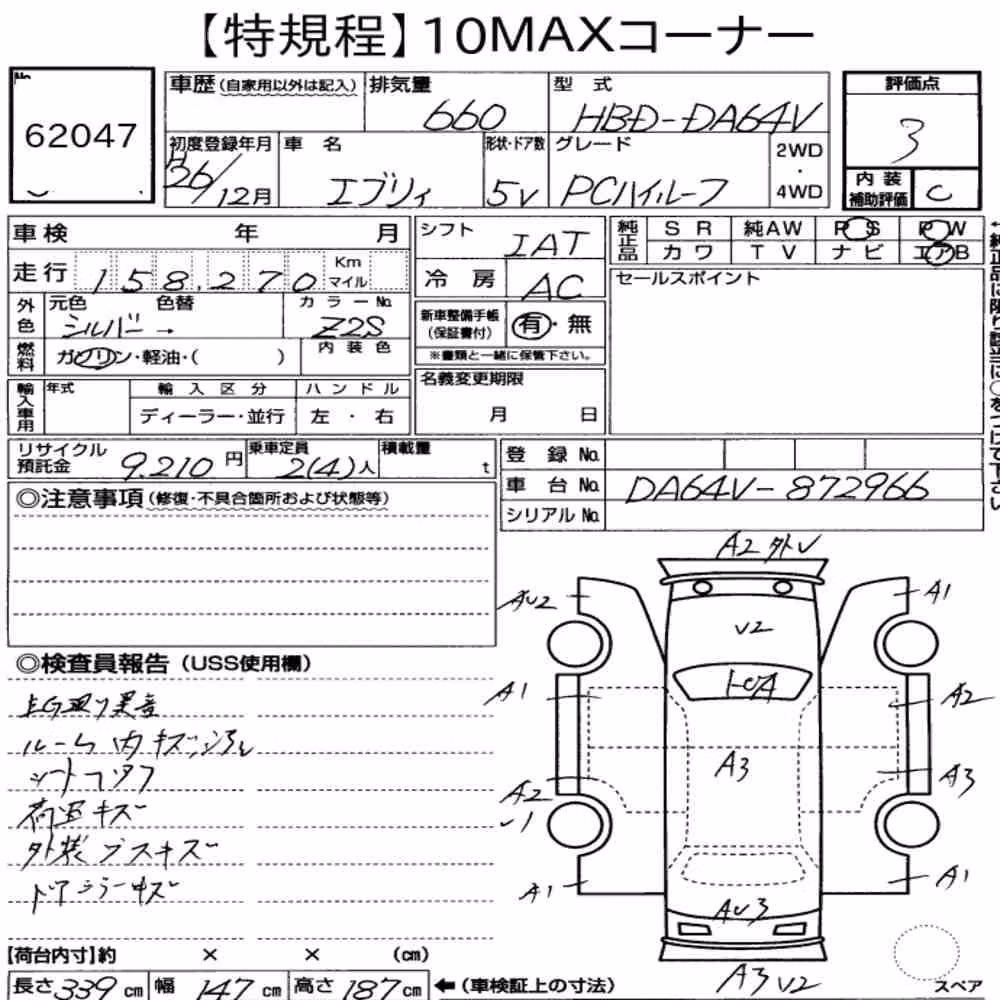 【特規程】10MAXコーナー
No.
62047
車歴 (自家用以外は記入)
排気量
660
型式
HBD-DA64V
評価点
3
初度登録年月
26/12月
車名
エブリィ
形状・ドア数
5V
グレード
PCハイルーフ
2WD
・
4WD
内装
補助評価
C
車検 年 月
走行 158,270 Km マイル
外色
元色
シルバー →
色替
カラーNo.
Z2S
燃料
ガソリン・軽油・( )
内装色
輸入車用
年式
輸入区分
ディーラー・並行
ハンドル
左・右
シフト
IAT
冷房
AC
新車整備手帳
(保証書付)
有・無
※書類と一緒に保管下さい。
名義変更期限
月 日
純正品
SR 純AW PS PW
カワ TV ナビ エアB
セールスポイント
リサイクル
預託金
9,210円
乗車定員
2(4)人
積載量
t
登録No.
車台No. DA64V-872966
シリアルNo.
◎注意事項 (修復・不具合箇所および状態等)
◎検査員報告 (USS使用欄)
ルーム内キズ
荷室キズ
外装
ドアミラーキズ
A2
AU2
A1
V2
A1
A2
A3
A2
A3
A1
AU3
A1
A3 V2
スペア
【荷台内寸】約 × × (cm)
長さ339cm 幅147cm 高さ187cm ←(車検証上の寸法)